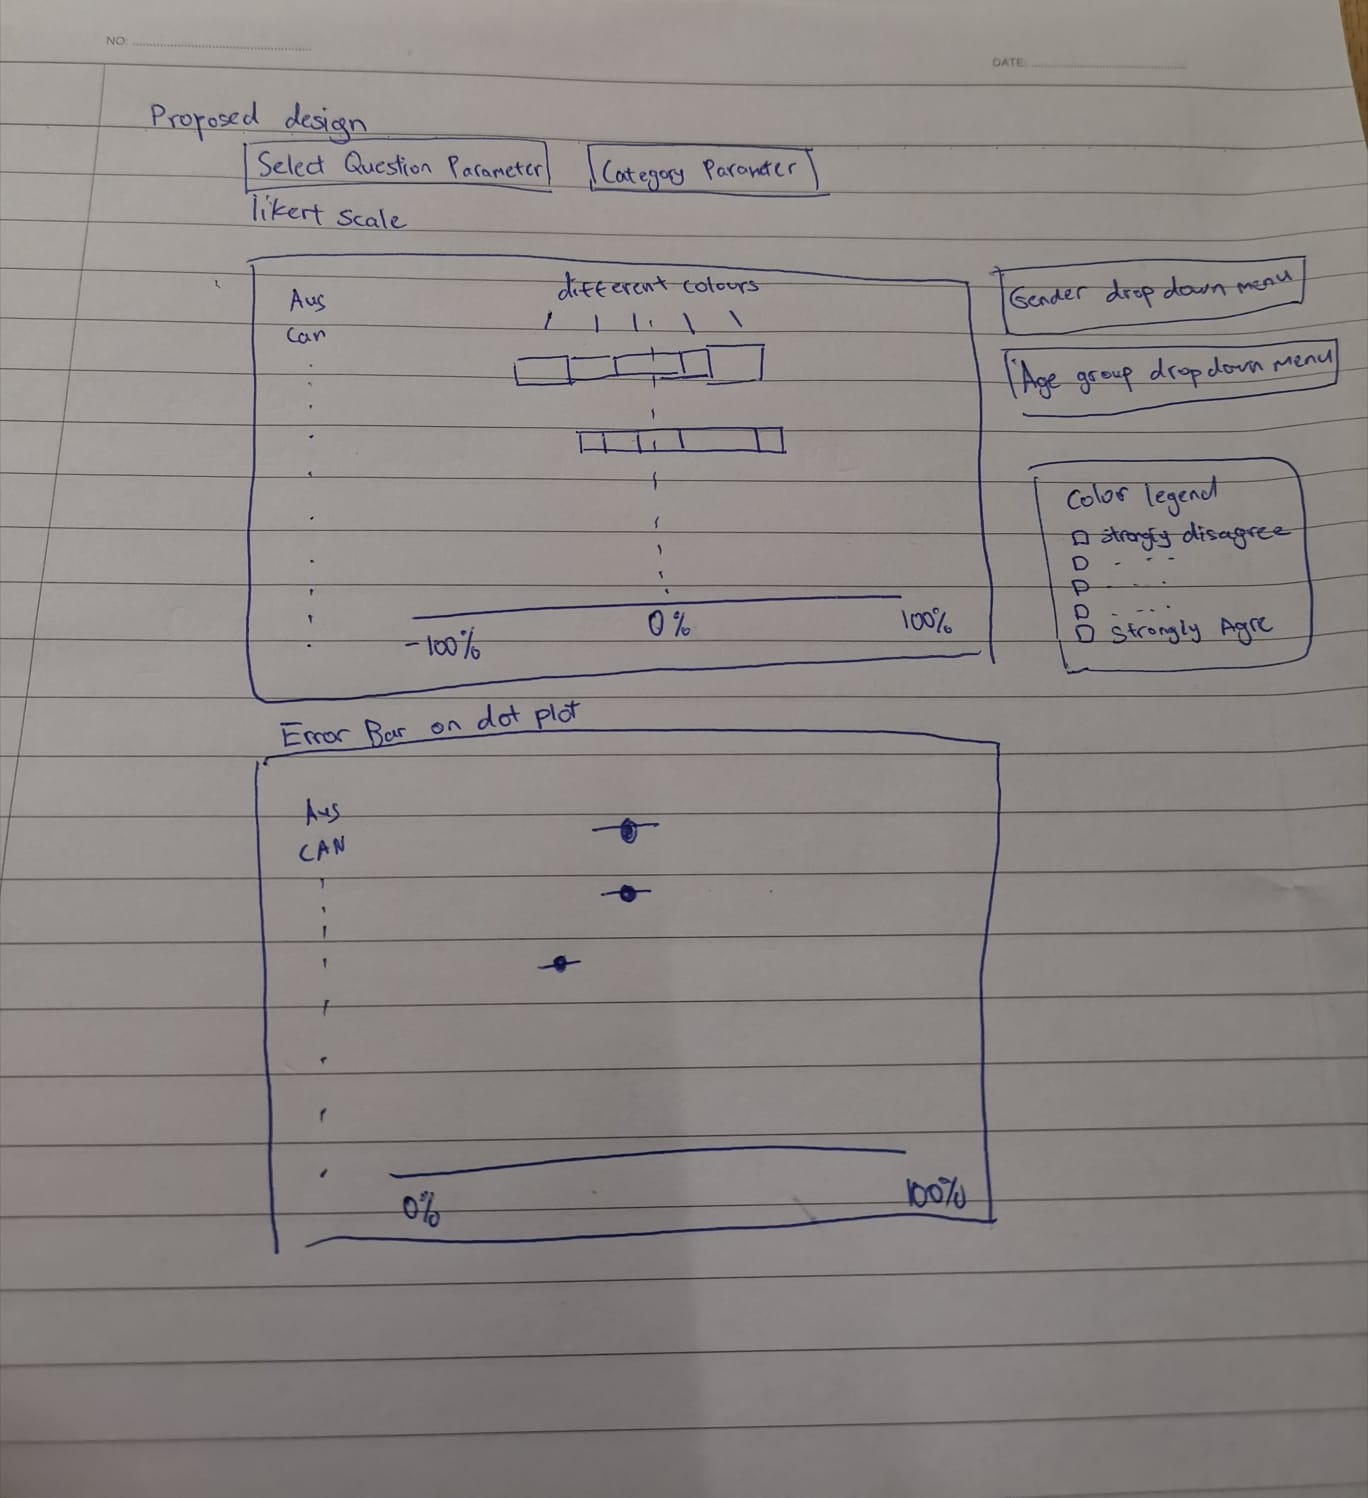 NO:
DATE:
Proposed design
Select Question Parameter
Category Paramter
likert scale
Aus
Can
different colours
Gender drop down menu
Age group dropdown menu
Color legend
strongly disagree
Strongly Agre
-100%
0%
100%
Error Bar on dot plot
Aus
CAN
0%
100%